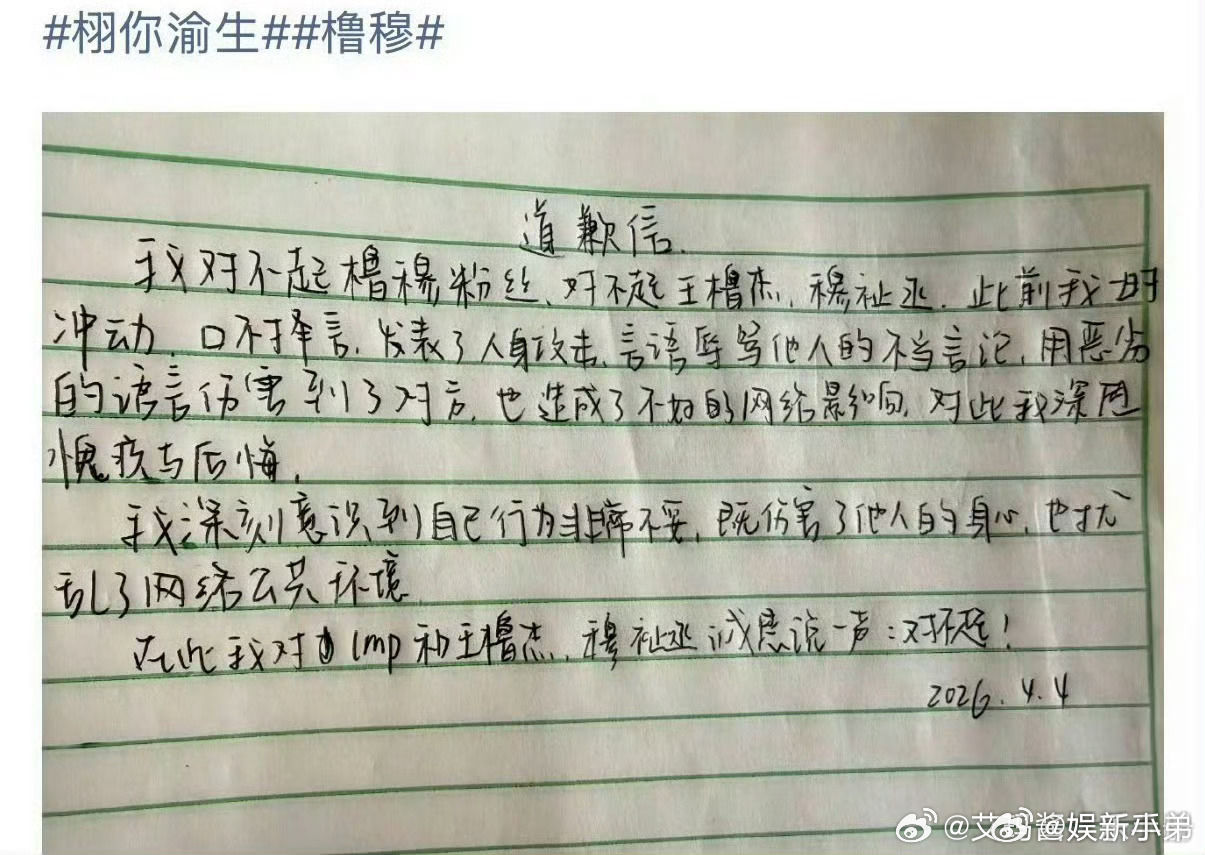 #栩你渝生##橹穆#
道歉信.
我对不起橹穆粉丝、对不起王橹杰、穆祉丞.此前我一时
冲动、口不择言,发表了人身攻击、言语辱骂他人的不当言论,用恶劣
的语言伤害到了对方,也造成了不好的网络影响,对此我深感
愧疚与后悔,
我深刻意识到自己行为非常不妥,既伤害了他人的身心,也扰
乱了网络公共环境.
在此我对lmp和王橹杰、穆祉丞诚恳说一声:对不起!
2026.4.4
@艾玛酱娱